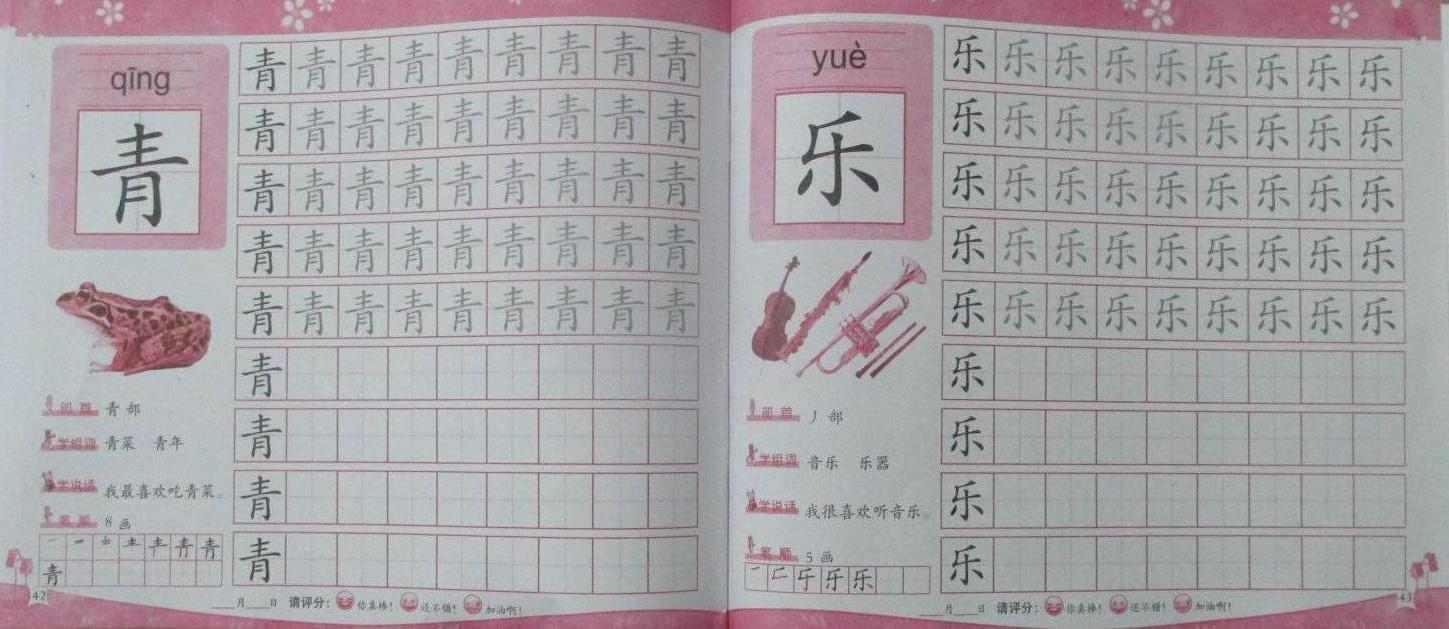 qīng
青
青 青 青 青 青 青 青 青 青
青 青 青 青 青 青 青 青 青
青 青 青 青 青 青 青 青 青
青 青 青 青 青 青 青 青 青
青 青 青 青 青 青 青 青 青
青
青
青
青
部首 青部
学组词 青菜 青年
学说话 我最喜欢吃青菜。
笔顺 8画
青
青
42
月 日 请评分: 你真棒! 还不错! 加油啊!
yuè
乐
乐 乐 乐 乐 乐 乐 乐 乐 乐
乐 乐 乐 乐 乐 乐 乐 乐 乐
乐 乐 乐 乐 乐 乐 乐 乐 乐
乐 乐 乐 乐 乐 乐 乐 乐 乐
乐 乐 乐 乐 乐 乐 乐 乐 乐
乐
乐
乐
乐
部首 丿部
学组词 音乐 乐器
学说话 我很喜欢听音乐。
笔顺 5画
乐
月 日 请评分: 你真棒! 还不错! 加油啊!
43